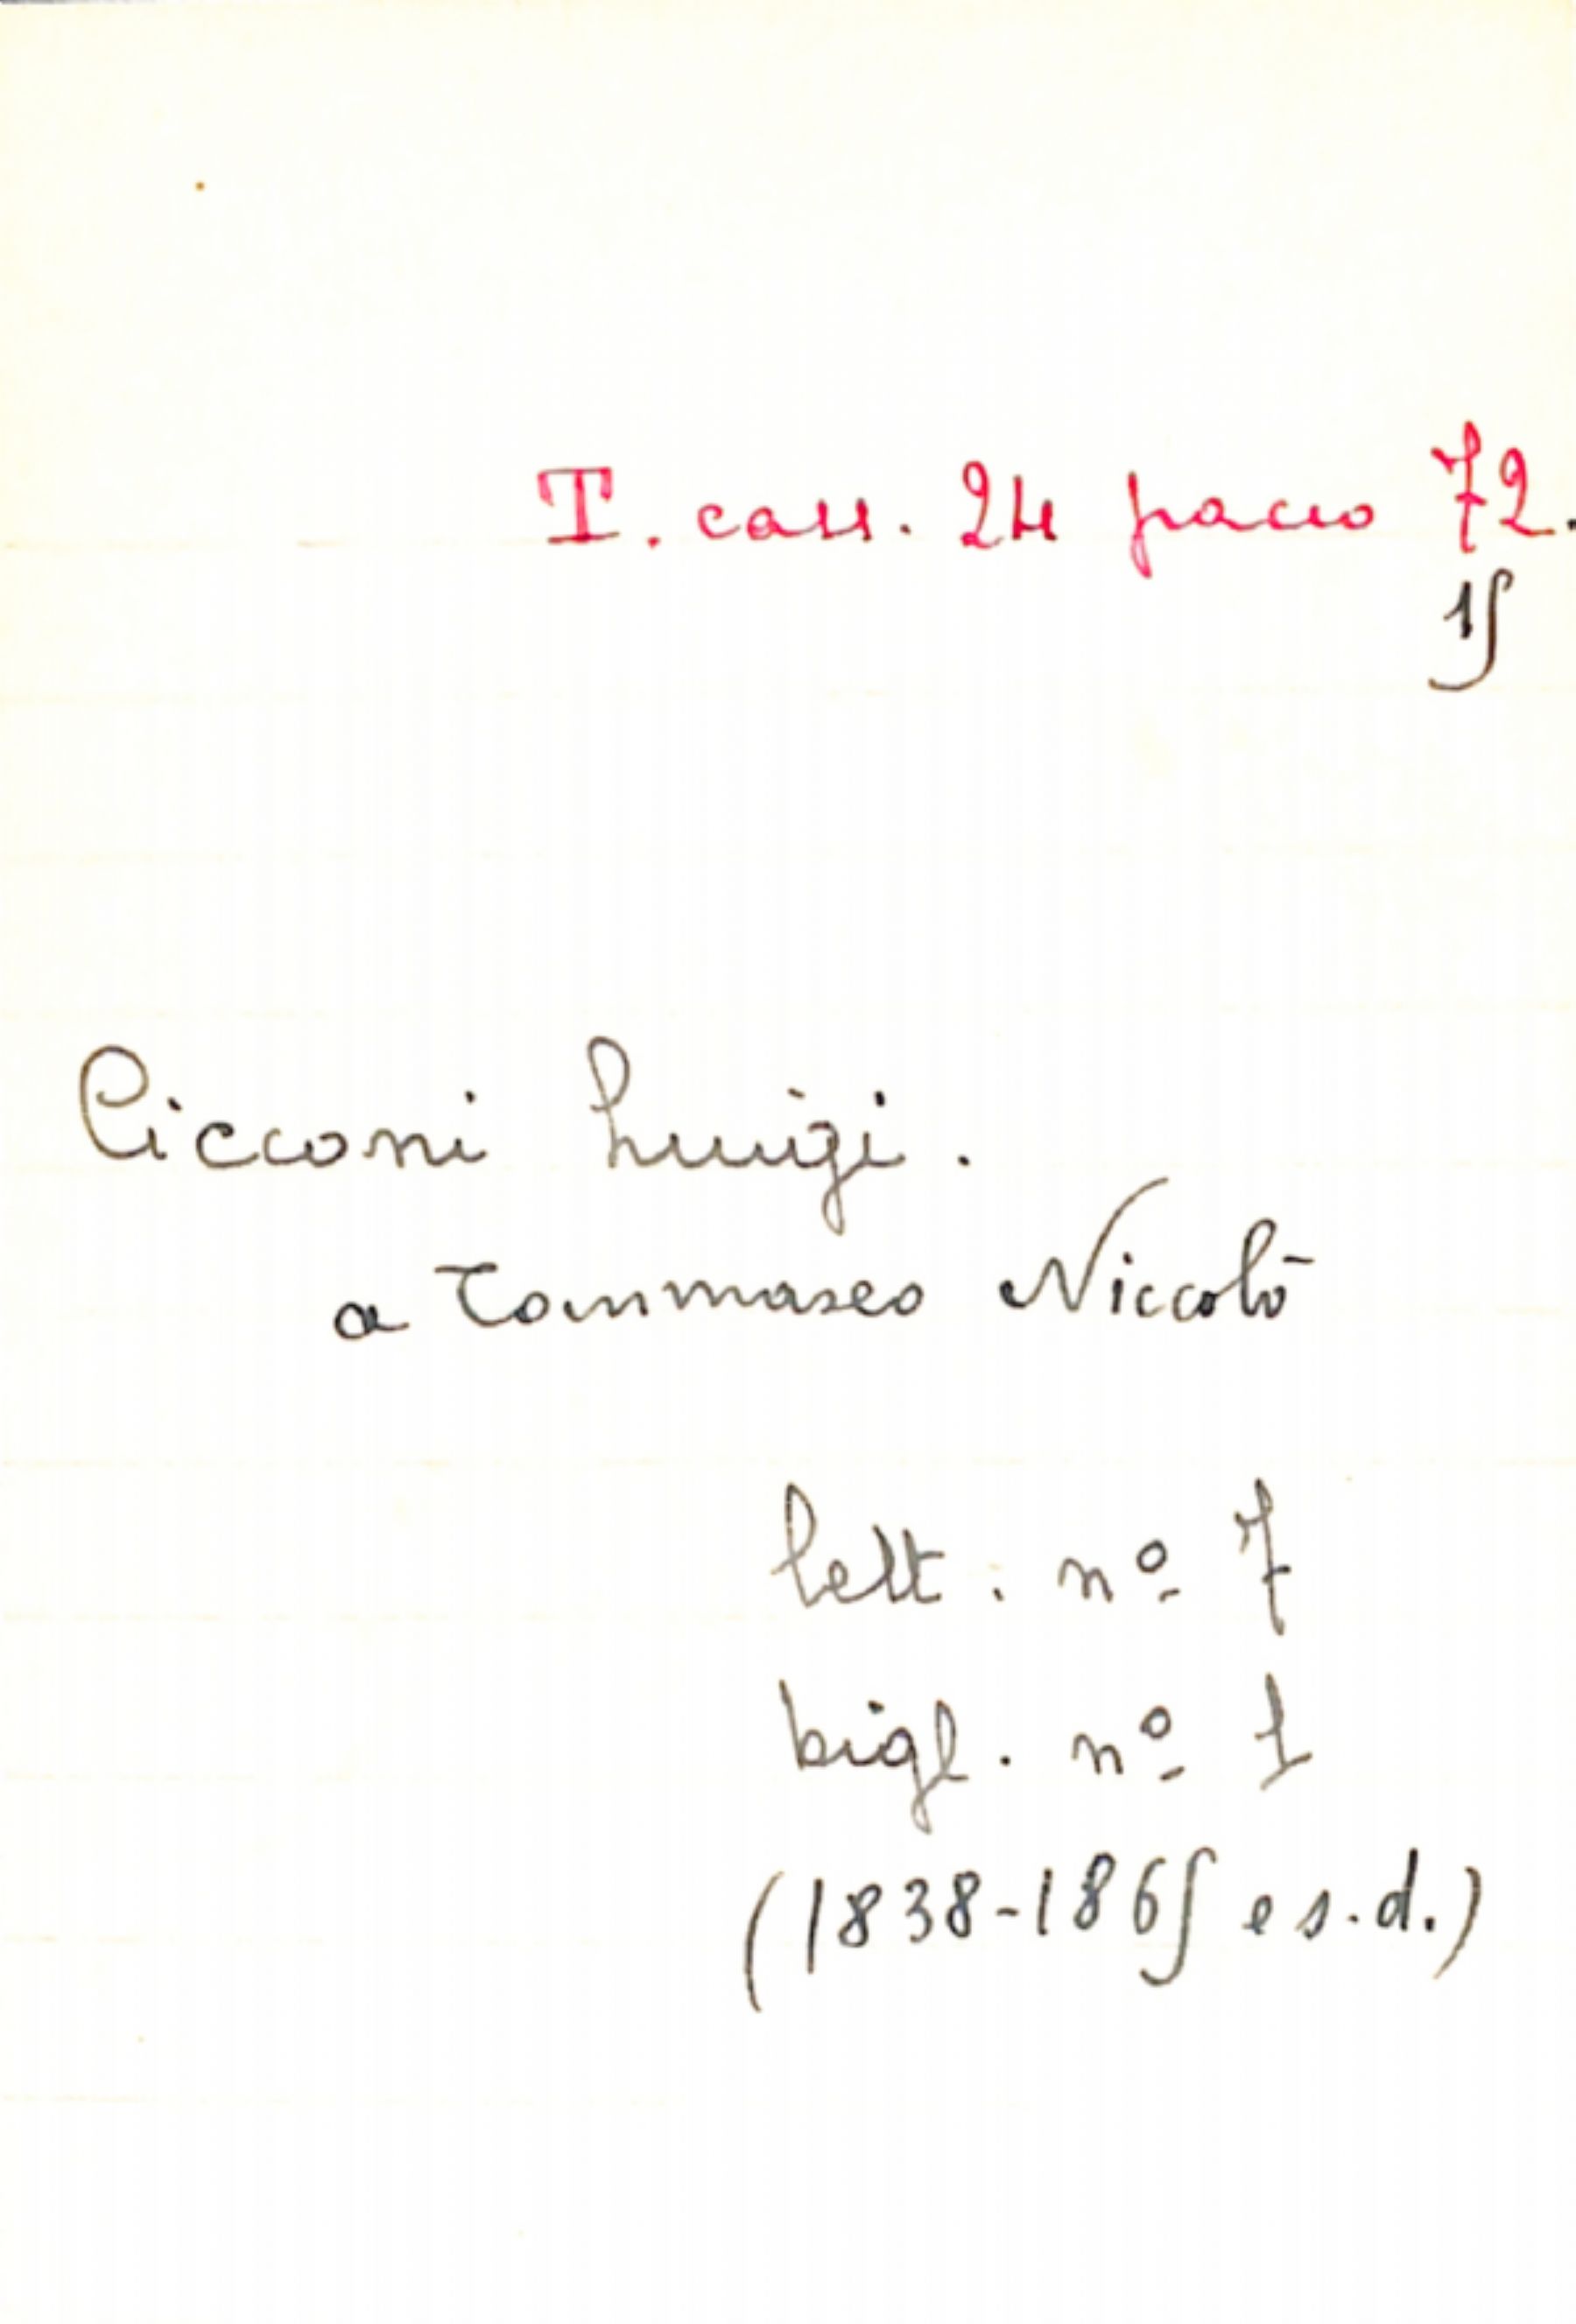 T. cass. 24 pacco 72.
15
Cicconi Luigi.
a Tommaseo Niccolò
lett. nº 7
bigl. nº 1
(1838-1865 e s.d.)